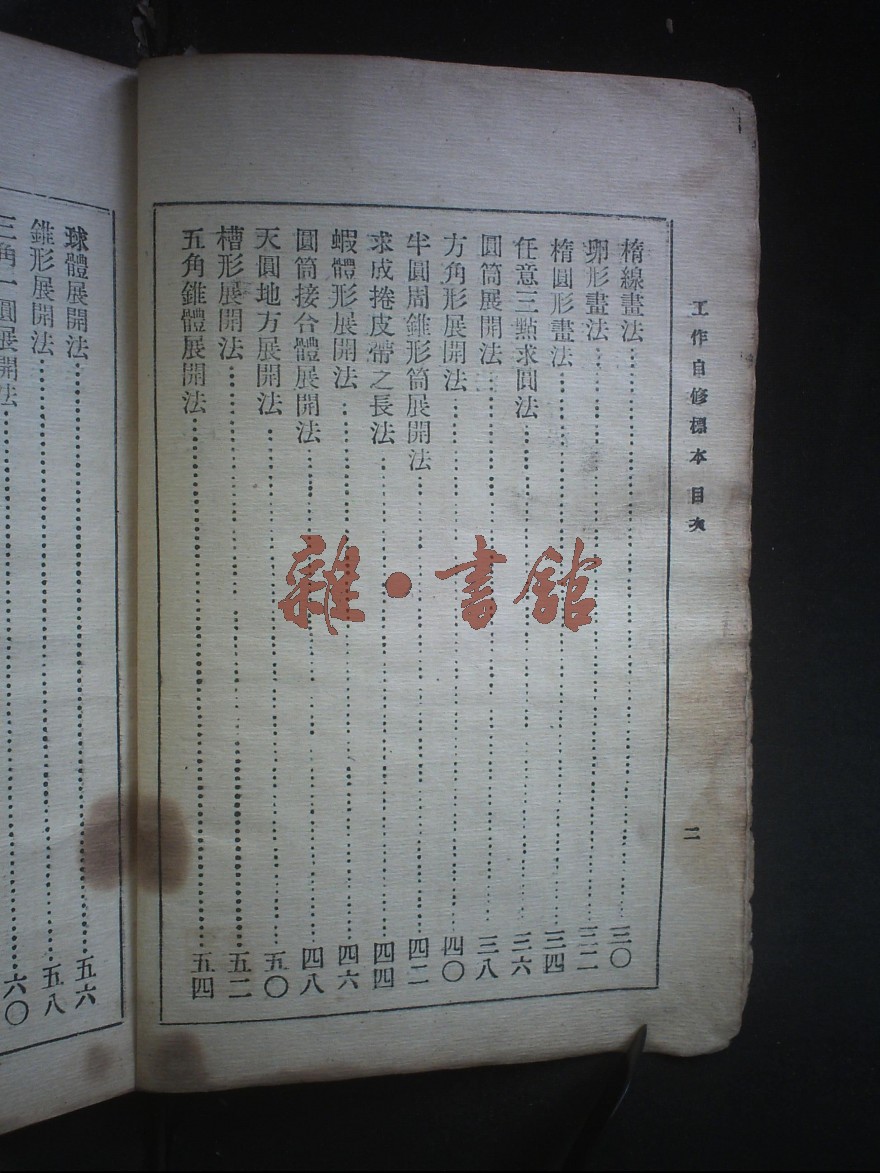 工作自修標本 目次
二
橢線畫法 三〇
卵形畫法 三二
橢圓形畫法 三四
任意三點求圓法 三六
圓筒展開法 三八
方角形展開法 四〇
半圓周錐形筒展開法 四二
求成捲皮帶之長法 四四
蝦體形展開法 四六
圓筒接合體展開法 四八
天圓地方展開法 五〇
槽形展開法 五二
五角錐體展開法 五四
球體展開法 五六
錐形展開法 五八
三角一圓展開法 六〇
雜·書館